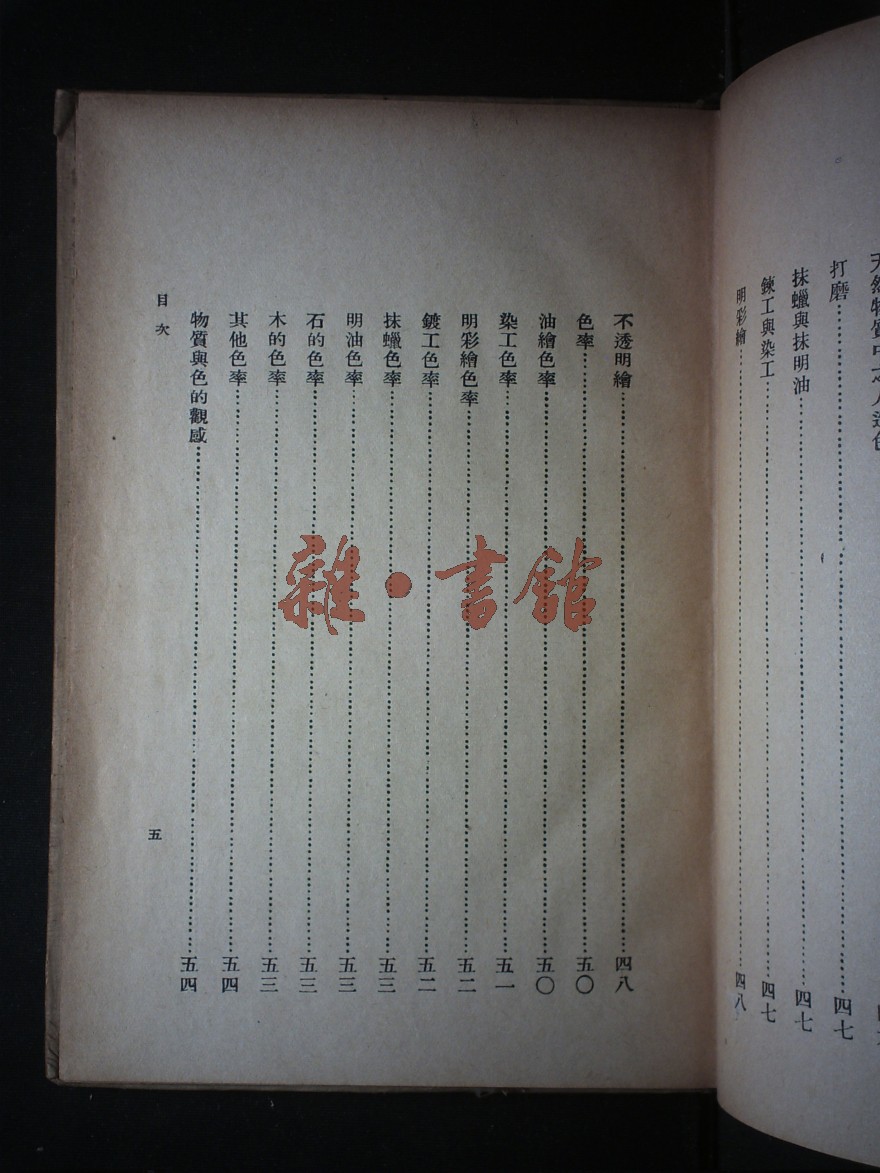 天然物質中之人造色
打磨……四七
抹蠟與抹明油……四七
鍊工與染工……四七
明彩繪……四八
不透明繪……四八
色率……五〇
油繪色率……五〇
染工色率……五一
明彩繪色率……五二
鍍工色率……五二
抹蠟色率……五三
明油色率……五三
石的色率……五三
木的色率……五三
其他色率……五四
物質與色的觀感……五四
目次
五
雜·書館